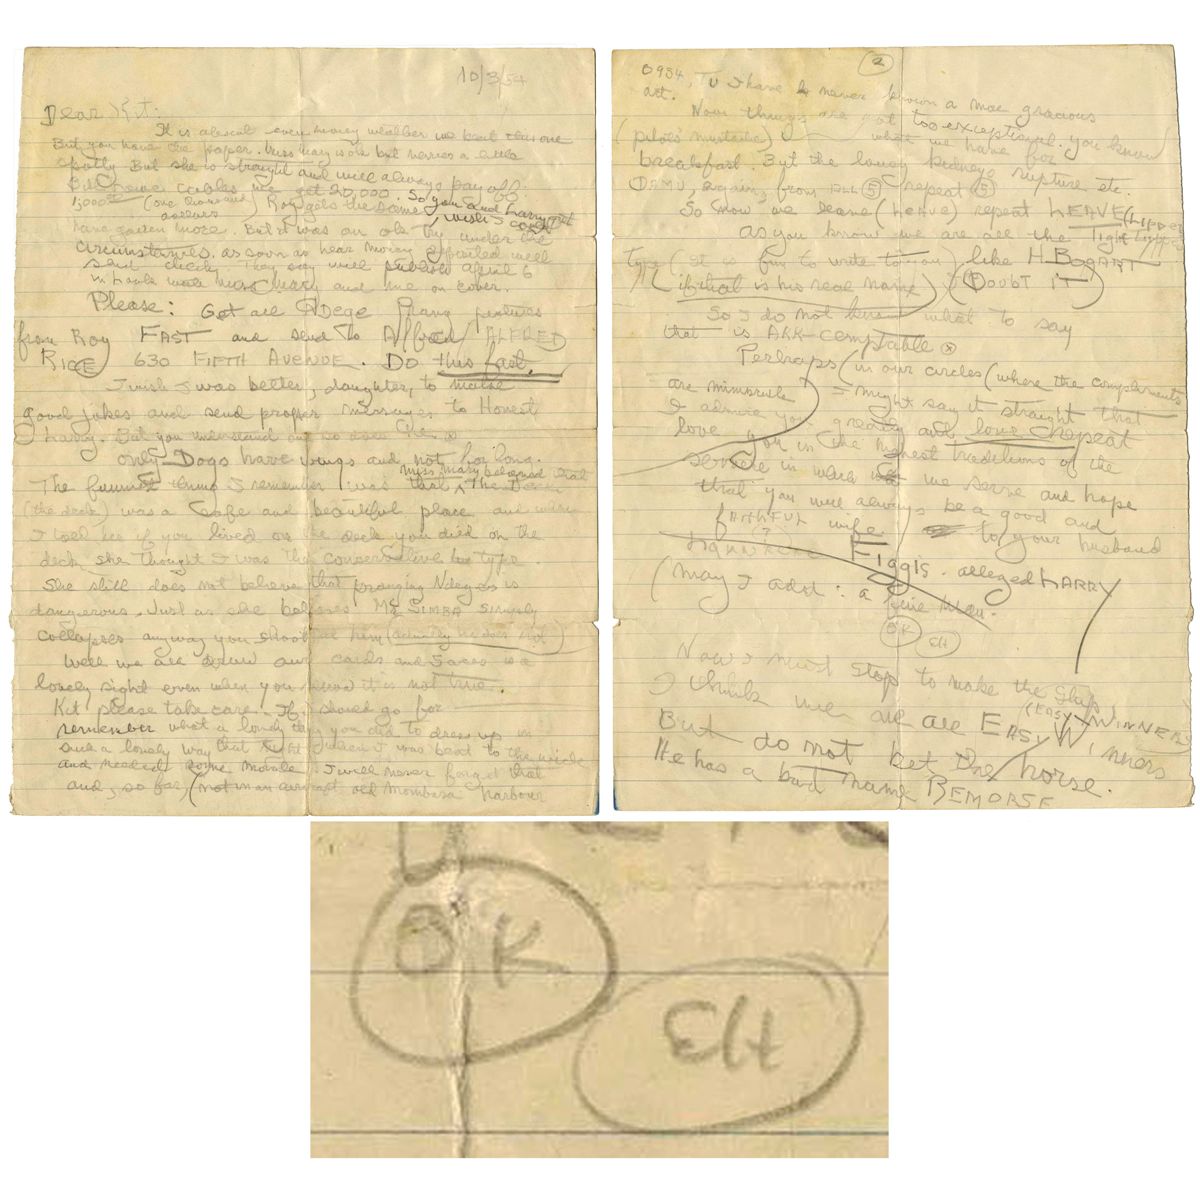 10/3/54
Dear Kit:
It is about even money whether we beat this one
But you have the paper. Miss Mary is ok but nerves a little
spotty But she is straight and will always pay off.
cables me get 20,000. So you and Harry get
1,000 (one thousand dollars) Roy gets the same, wish I could
have gotten more. But it was an ok try under the
circumstances. as soon as hear money deposited will
send check. They say will publish April 6
Mary and me on cover.
Please: Get all Ndege prang pictures
from Roy FAST and send to Alfred (ALFRED
RICE) 630 FIFTH AVENUE. DO this fast.
I wish I was better, daughter, to make
good jokes and send proper messages to Honest
Harry. But you understand
only Dogs have wings and not for long.
The funniest thing I remember was that Miss Mary believed that The Deck
(the deck) was a safe and beautiful place and when
I told her if you lived on the deck you died on the
deck she thought I was the conservative type.
She still does not believe that pranging Ndeges is
dangerous. Just as she believes Mr. SIMBA simply
collapses anyway you shoot at him (actually he does not)
Well we all draw our cards and 5 aces is a
lovely sight even when you know it is not true.
Kit please take care. If should go for
remember what a lovely thing you did to dress up in
such a lovely way that night when I was beat to the wide
and needed some morale I will never forget that
and, so far, (not man aircraft old Mombasa harbour
2
0954, TU I have never known a more gracious
act.
Now things are not too exceptional. you know
(pilots' mustache) what we have for
breakfast. But the lousy kidneys rupture etc.
DAMU, Bwgain, from ALL (5) repeat (5)
So now we leave (LEAVE) repeat LEAVE (LIPPED
as you know we are all the tight lipped
type (it is fun to write to you) like H. BOGART
(if that is his real name) (DOUBT IT)
So I do not know what to say
that is ARK-ceptable
Perhaps (in our circles (where the compliments
are minuscule) = might say it straight that
I admire you greatly and love repeat
love you in the highest traditions of the
service in which we serve and hope
that you will always be a good and
FAITHFUL wife to your husband
(?)
FIGGIS. alleged HARRY
(May I add: a fine man.
OK EH
Now I must stop to make the Ship,
I think we all are EASY (EASY) WINNERS Winners
But do not bet the horse.
He has a bad name REMORSE
OK
EH